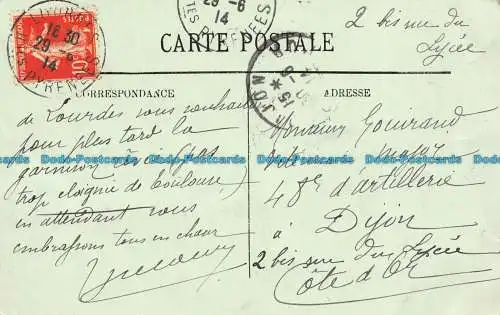 LIVRON
16 30
29-6
14
PYRENEES
29-6
14
PYRENEES
2 bis rue du
Lycée
CARTE POSTALE
DIJON
15
CORRESPONDANCE
ADRESSE
de Lourdes vous souhaitant
pour plus tard la
garnison
trop éloignée de Toulouse
en attendant vous
embrassons tous en chœur
Monsieur Gouirand
Major
48e d'artillerie
à
Dijon
2 bis rue du Lycée
Côte d'Or
Dodo-Postcards Dodo-Postcards Dodo-Postcards Dodo-Postcards Dodo-Postcards